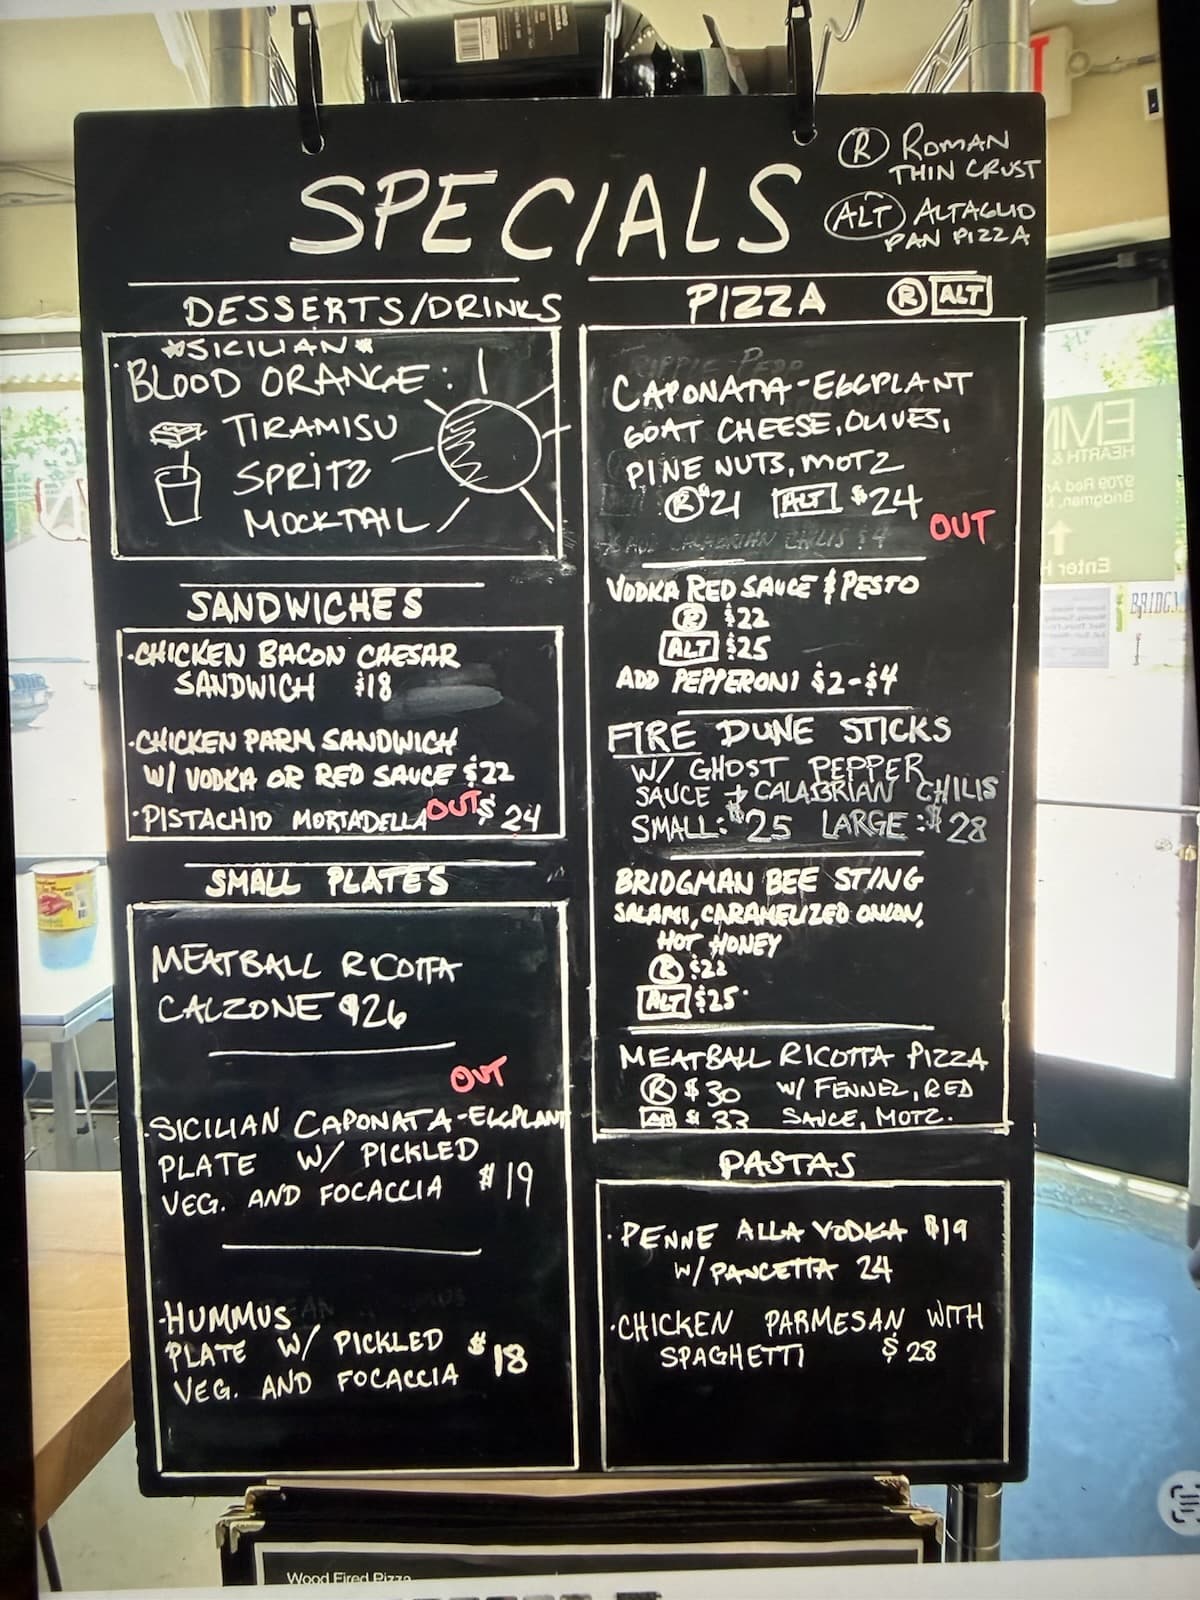 SPECIALS
R ROMAN
THIN CRUST
ALT ALTAGLIO
PAN PIZZA
DESSERTS/DRINKS
*SICILIAN*
BLOOD ORANGE:
TIRAMISU
SPRITZ
MOCKTAIL
SANDWICHES
·CHICKEN BACON CAESAR
SANDWICH $18
·CHICKEN PARM SANDWICH
W/ VODKA OR RED SAUCE $22
·PISTACHIO MORTADELLA OUT $24
SMALL PLATES
MEATBALL RICOTTA
CALZONE $26
OUT
·SICILIAN CAPONATA-EGGPLANT
PLATE W/ PICKLED
VEG. AND FOCACCIA $19
·HUMMUS
PLATE W/ PICKLED $18
VEG. AND FOCACCIA
PIZZA R ALT
CAPONATA-EGGPLANT
GOAT CHEESE, OLIVES,
PINE NUTS, MOTZ
R $21 ALT $24
OUT
VODKA RED SAUCE & PESTO
R $22
ALT $25
ADD PEPPERONI $2-$4
FIRE DUNE STICKS
W/ GHOST PEPPER
SAUCE + CALABRIAN CHILIS
SMALL: $25 LARGE: $28
BRIDGMAN BEE STING
SALAMI, CARAMELIZED ONION,
HOT HONEY
R $22
ALT $25
MEATBALL RICOTTA PIZZA
R $30 W/ FENNEL, RED
ALT $33 SAUCE, MOTZ.
PASTAS
·PENNE ALLA VODKA $19
W/ PANCETTA 24
·CHICKEN PARMESAN WITH
SPAGHETTI $28
HEARTH &
9709 Red
Bridgman,
Enter
Wood Fired Pizza